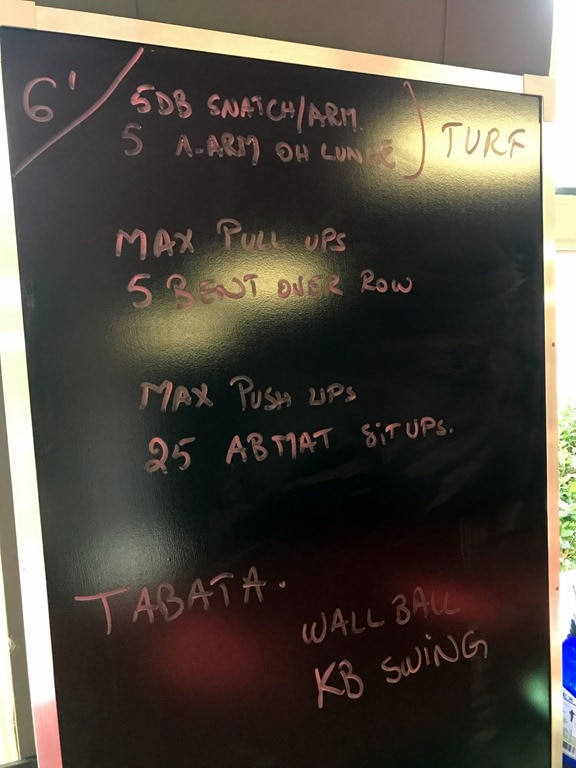 6'
5 DB SNATCH/ARM
5 A-ARM OH LUNGE
TURF
MAX PULL UPS
5 BENT OVER ROW
MAX PUSH UPS
25 ABMAT SITUPS.
TABATA.
WALL BALL
KB SWING